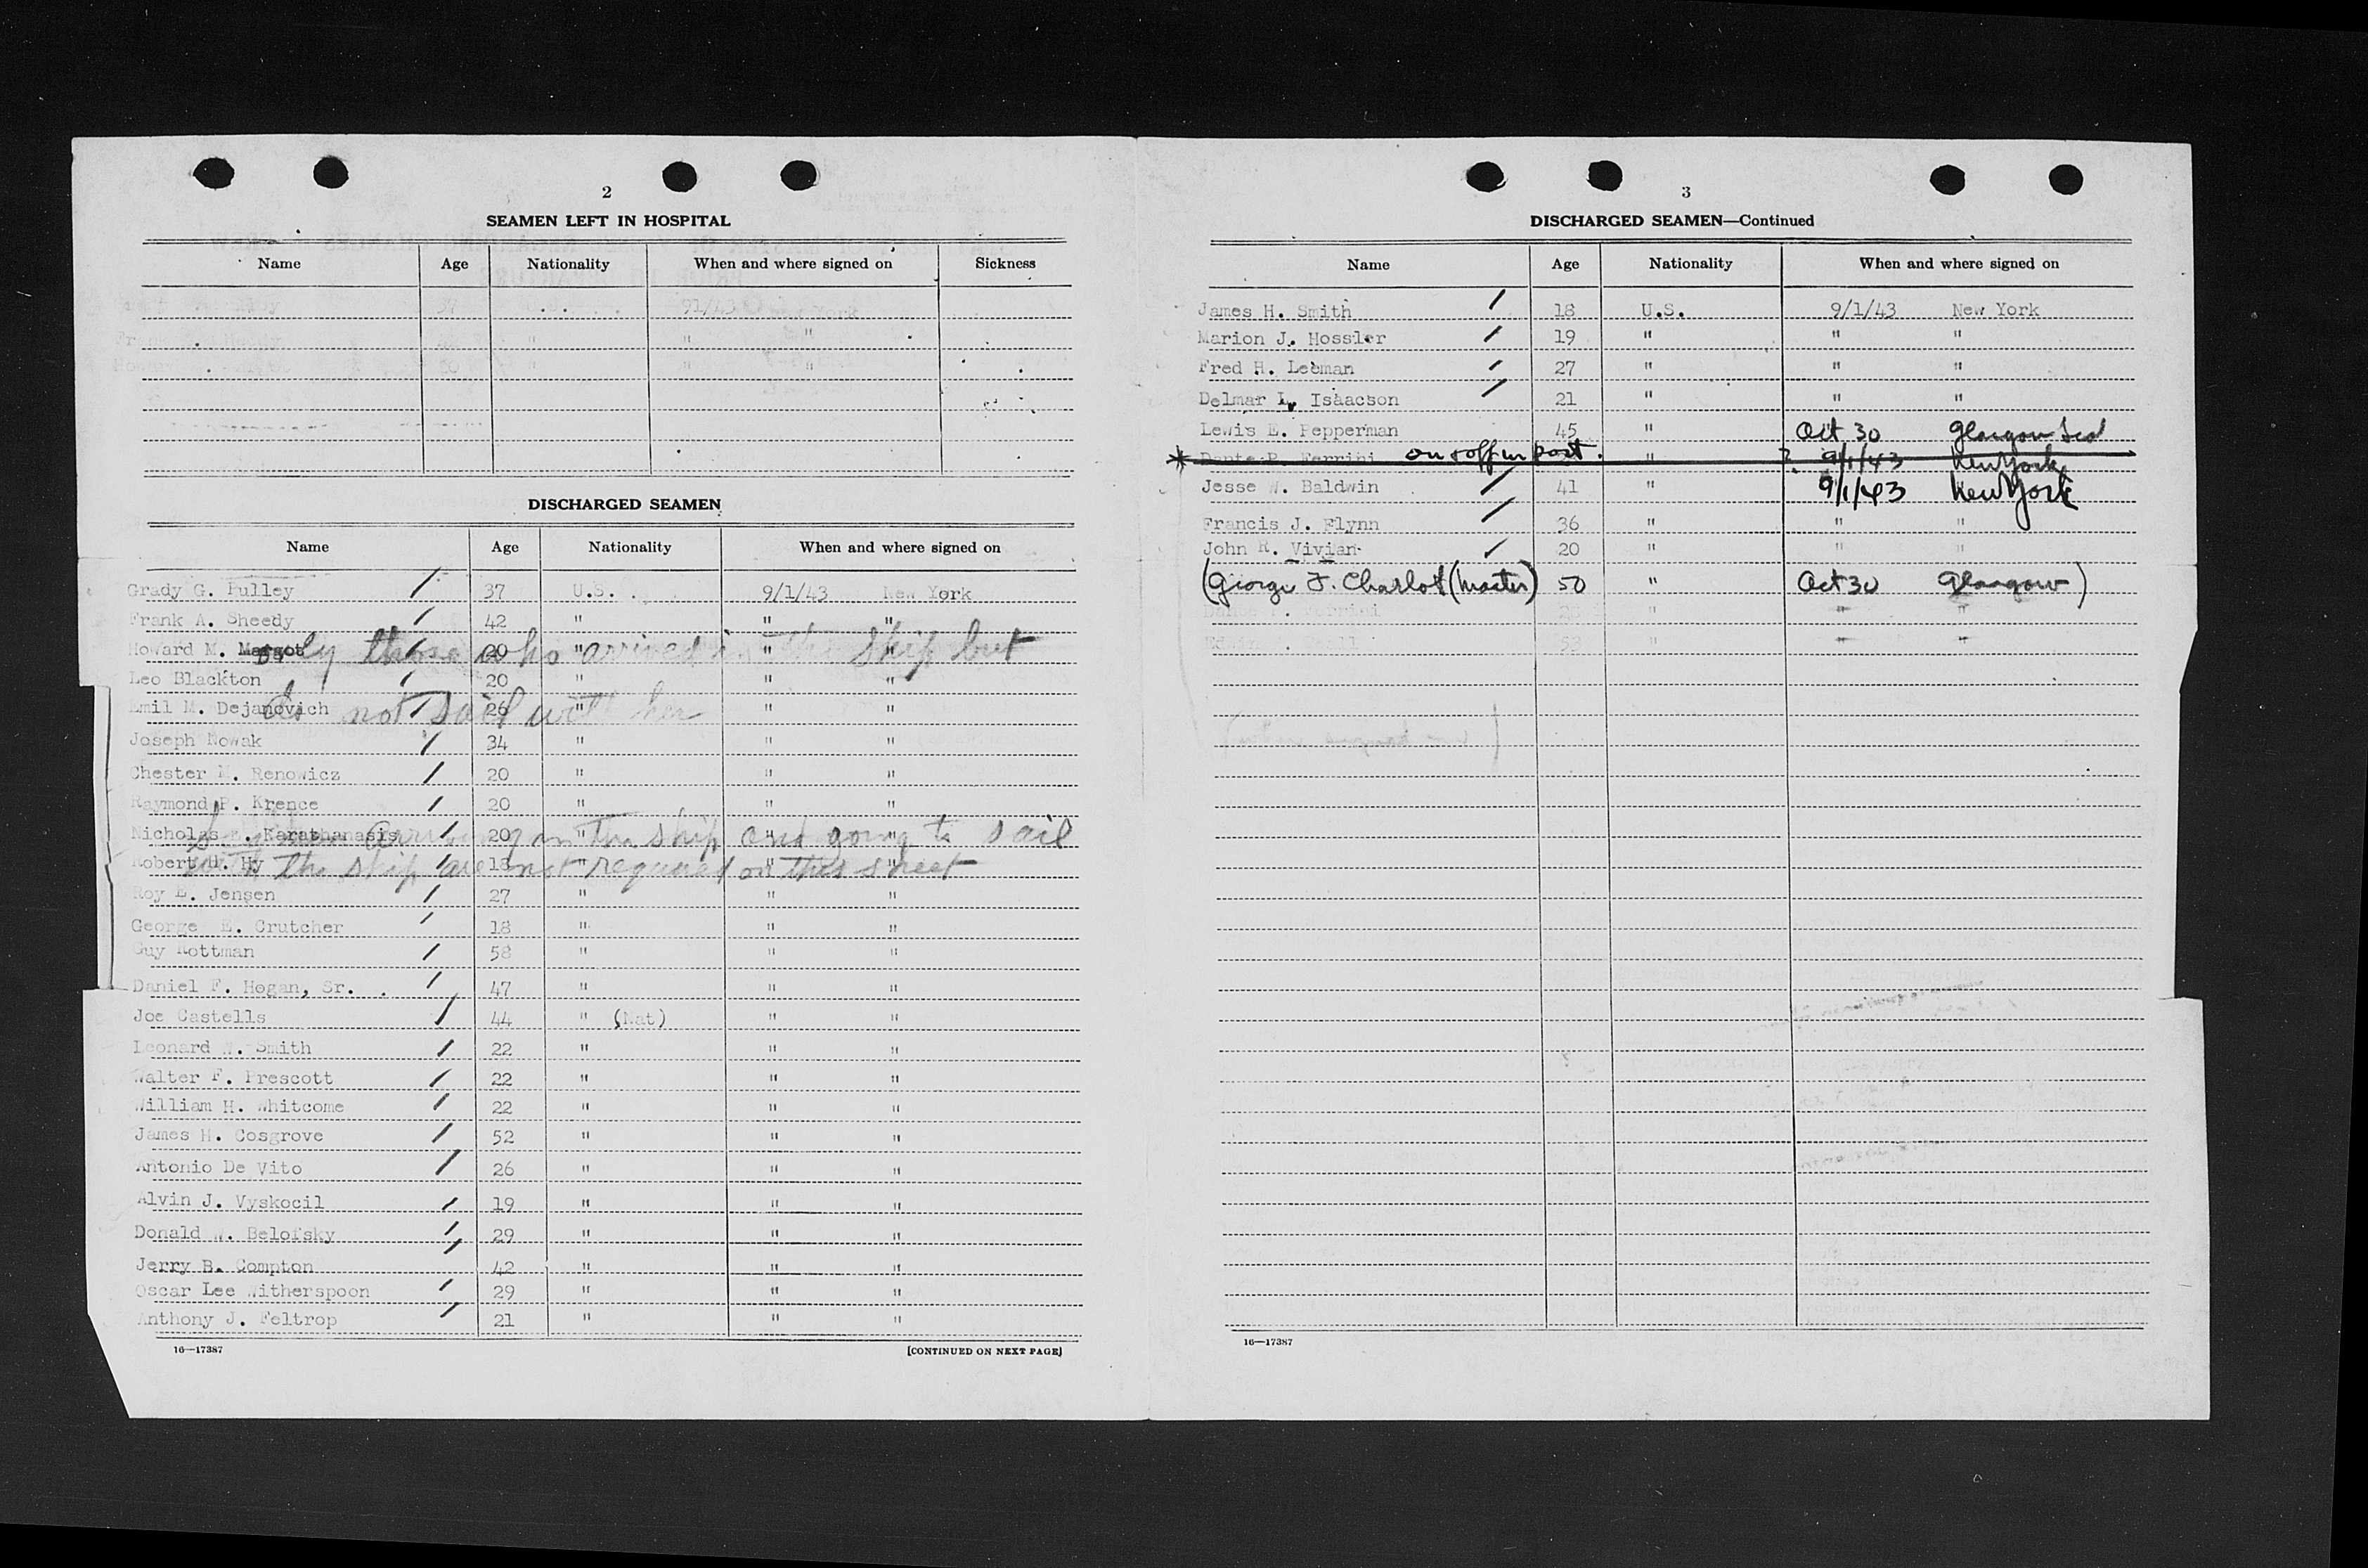 2
SEAMEN LEFT IN HOSPITAL
Name Age Nationality When and where signed on Sickness
37 91/43 York
Fran " " "
20 " " "
DISCHARGED SEAMEN
Name Age Nationality When and where signed on
Grady G. Pulley / 37 U.S. 9/1/43 New York
Frank A. Sheedy / 42 " " "
Howard M. Margot / 20 " " "
only those who arrived in the ship but
Leo Blackton / 20 " " "
Emil M. Dejanovich / 26 " " "
do not sail with her
Joseph Nowak / 34 " " "
Chester M. Renowicz / 20 " " "
Raymond P. Krence / 20 " " "
Nicholas Karathanasis / 20 " " "
arriving on the ship and going to sail
Robert H. Hy / 18 " " "
with the ship are not required on this sheet
Roy E. Jensen / 27 " " "
George E. Crutcher / 18 " " "
Guy Rottman / 58 " " "
Daniel F. Hogan, Sr. / 47 " " "
Joe Castells / 44 " (Nat) " "
Leonard W. Smith / 22 " " "
Walter F. Prescott / 22 " " "
William H. Whitcome / 22 " " "
James H. Cosgrove / 52 " " "
Antonio De Vito / 26 " " "
Alvin J. Vyskocil / 19 " " "
Donald W. Belofsky / 29 " " "
Jerry B. Compton / 42 " " "
Oscar Lee Witherspoon / 29 " " "
Anthony J. Feltrop / 21 " " "
16—17387 [CONTINUED ON NEXT PAGE]
3
DISCHARGED SEAMEN—Continued
Name Age Nationality When and where signed on
James H. Smith / 18 U.S. 9/1/43 New York
Marion J. Hossler / 19 " " "
Fred H. Leeman / 27 " " "
Delmar L. Isaacson / 21 " " "
Lewis E. Pepperman 45 " Oct 30 Glasgow Scot
* Dante P. Ferrini on & off in port. " ? 9/1/43 New York
Jesse W. Baldwin / 41 " 9/1/43 New York
Francis J. Flynn / 36 " " "
John R. Vivian / 20 " " "
(George F. Charlot (Master) 50 " Oct 30 Glasgow)
" " "
53 " " "
16—17387